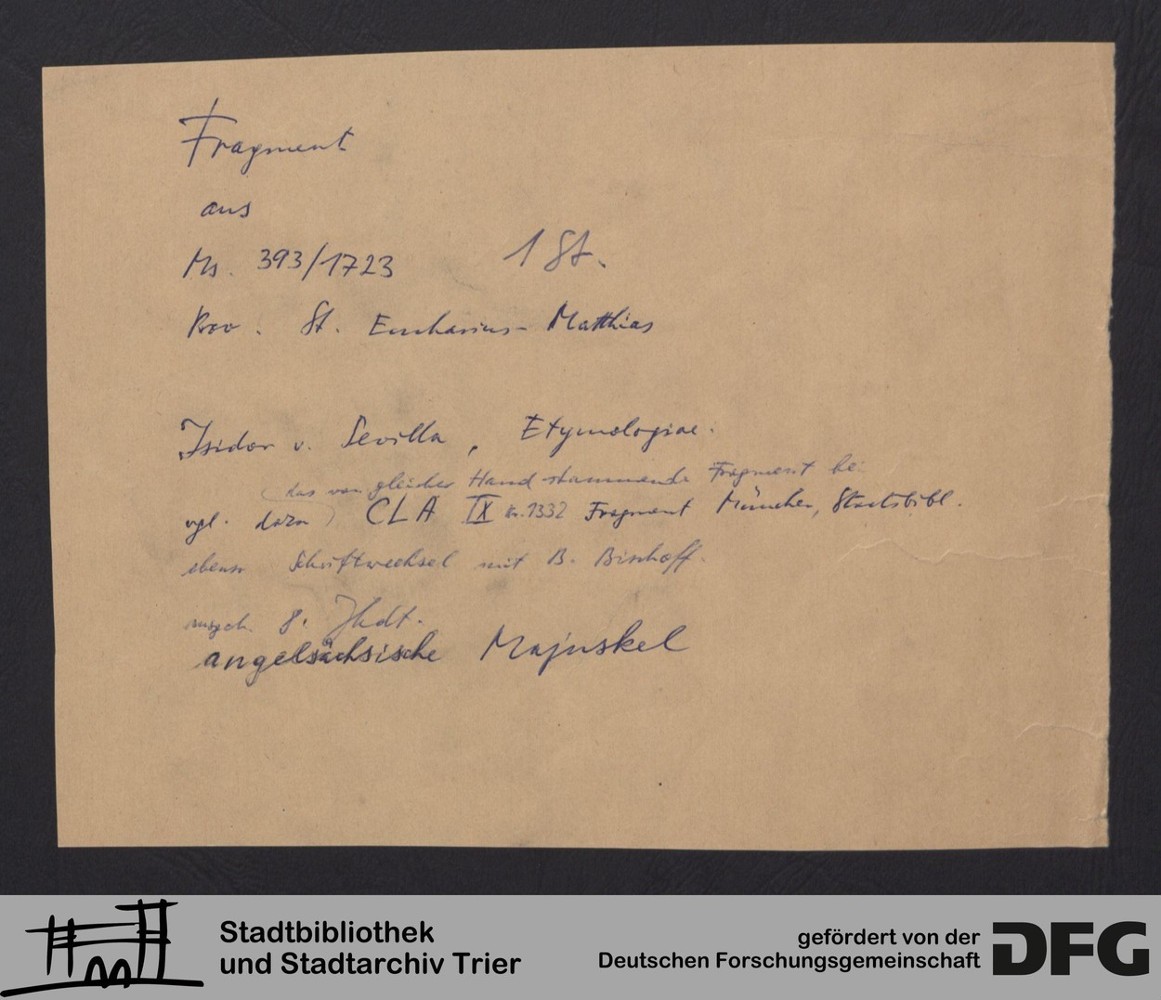 Fragment
aus
Ms. 393/1723 1 St.
Prov. St. Eucharius-Matthias
Isidor v. Sevilla, Etymologiae.
(das von gleicher Hand stammende Fragment bei
vgl. dazu) CLA IX Nr. 1332 Fragment München, Staatsbibl.
ebenso Schriftwechsel mit B. Bischoff.
8. Jhdt.
angelsächsische Majuskel
Stadtbibliothek
und Stadtarchiv Trier
gefördert von der
Deutschen Forschungsgemeinschaft
DFG